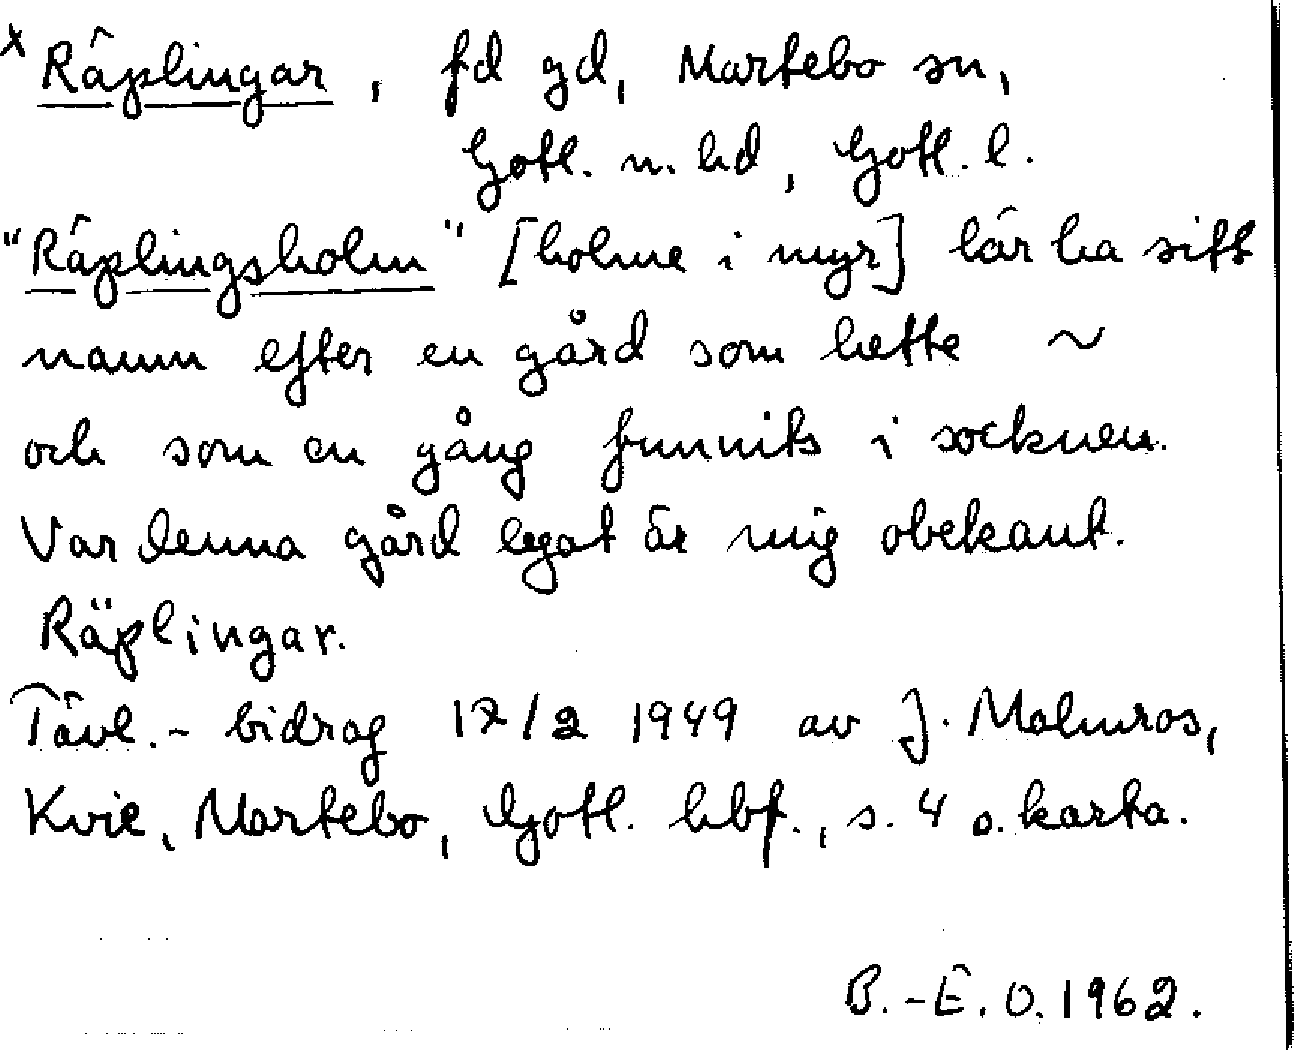 x Räplingar, fd gd, Martebo sn,
Gotl. n. hd, Gotl. l.
"Räplingsholm" [holme i myr] lär ha sitt
namn efter en gård som hette ~
och som en gång funnits i socknen.
Var denna gård legat är mig obekant.
Räplingar.
Tävl.-bidrag 17/2 1949 av J. Malmros,
Kvie, Martebo, Gotl. hbf., s. 4 o. karta.
B.-E. O. 1962.